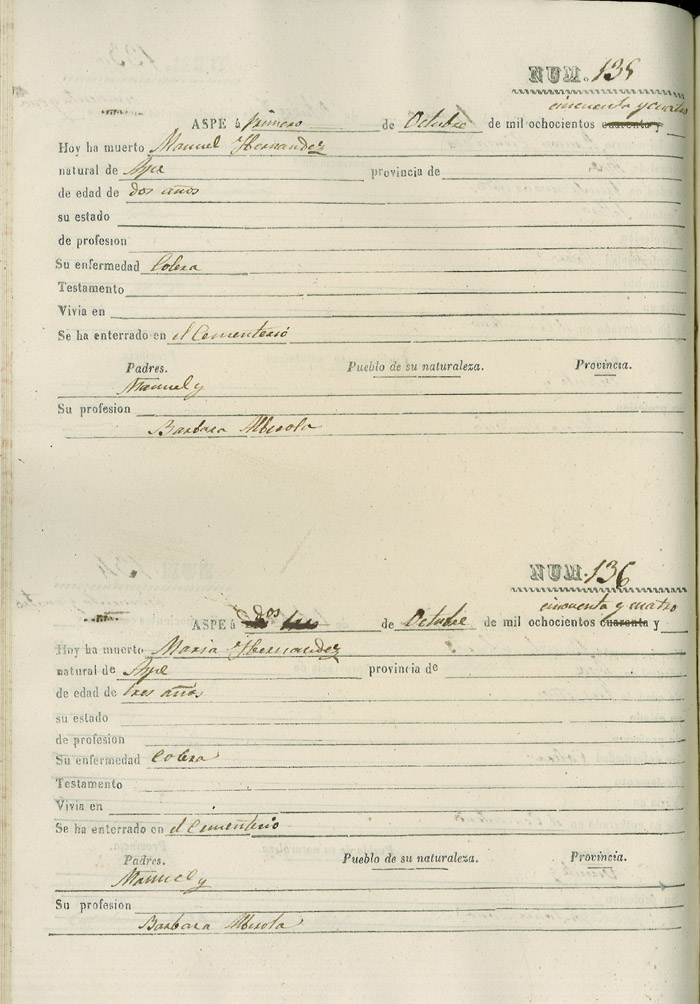 NUM. 135
cincuenta y cuatro
ASPE á primero de Octubre de mil ochocientos cuarenta y
Hoy ha muerto Manuel Hernandez
natural de Aspe provincia de
de edad de dos años
su estado
de profesion
Su enfermedad Colera
Testamento
Vivia en
Se ha enterrado en el Cementerio
Padres. Pueblo de su naturaleza. Provincia.
Manuel y
Su profesion
Barbara
NUM. 136
cincuenta y cuatro
dos
ASPE á de Octubre de mil ochocientos cuarenta y
Hoy ha muerto Maria Hernandez
natural de Aspe provincia de
de edad de tres años
su estado
de profesion
Su enfermedad Colera
Testamento
Vivia en
Se ha enterrado en el Cementerio
Padres. Pueblo de su naturaleza. Provincia.
Manuel y
Su profesion
Barbara